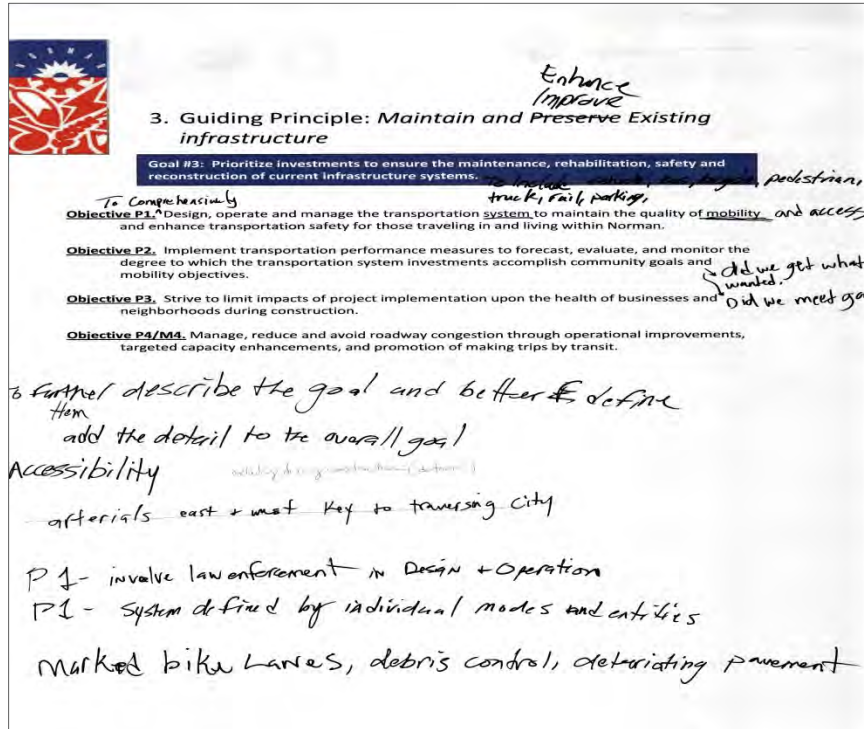 NORMAN
Enhance
Improve
3. Guiding Principle: Maintain and Preserve Existing
infrastructure
Goal #3: Prioritize investments to ensure the maintenance, rehabilitation, safety and
reconstruction of current infrastructure systems.
To include pedestrian,
truck, rail, parking,
To Comprehensively
Objective P1.^ Design, operate and manage the transportation system to maintain the quality of mobility and access
and enhance transportation safety for those traveling in and living within Norman.
Objective P2. Implement transportation performance measures to forecast, evaluate, and monitor the
degree to which the transportation system investments accomplish community goals and
mobility objectives.
did we get what
wanted.
Objective P3. Strive to limit impacts of project implementation upon the health of businesses and
neighborhoods during construction.
Did we meet goa
Objective P4/M4. Manage, reduce and avoid roadway congestion through operational improvements,
targeted capacity enhancements, and promotion of making trips by transit.
To further describe the goal and better define
them
add the detail to the overall goal
Accessibility
arterials east + west key to traversing city
P1- involve law enforcement in Design + Operation
P1- System defined by individual modes and entities
Marked bike Lanes, debris control, deteriating pavement